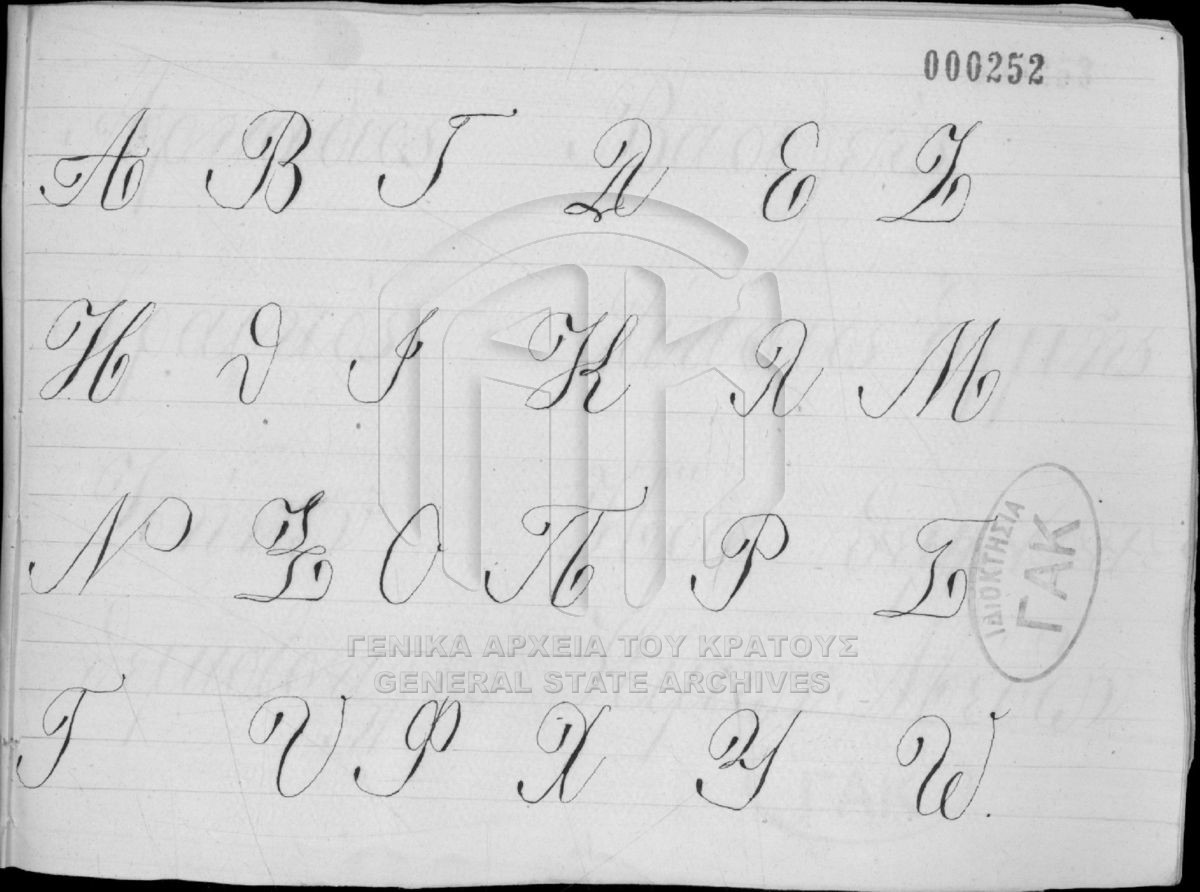 000252
Α Β Γ Δ Ε Ζ
Η Θ Ι Κ Λ Μ
Ν Ξ Ο Π Ρ Σ
ΙΔΙΟΚΤΗΣΙΑ
ΓΑΚ
ΓΕΝΙΚΑ ΑΡΧΕΙΑ ΤΟΥ ΚΡΑΤΟΥΣ
GENERAL STATE ARCHIVES
Τ Υ Φ Χ Ψ Ω.